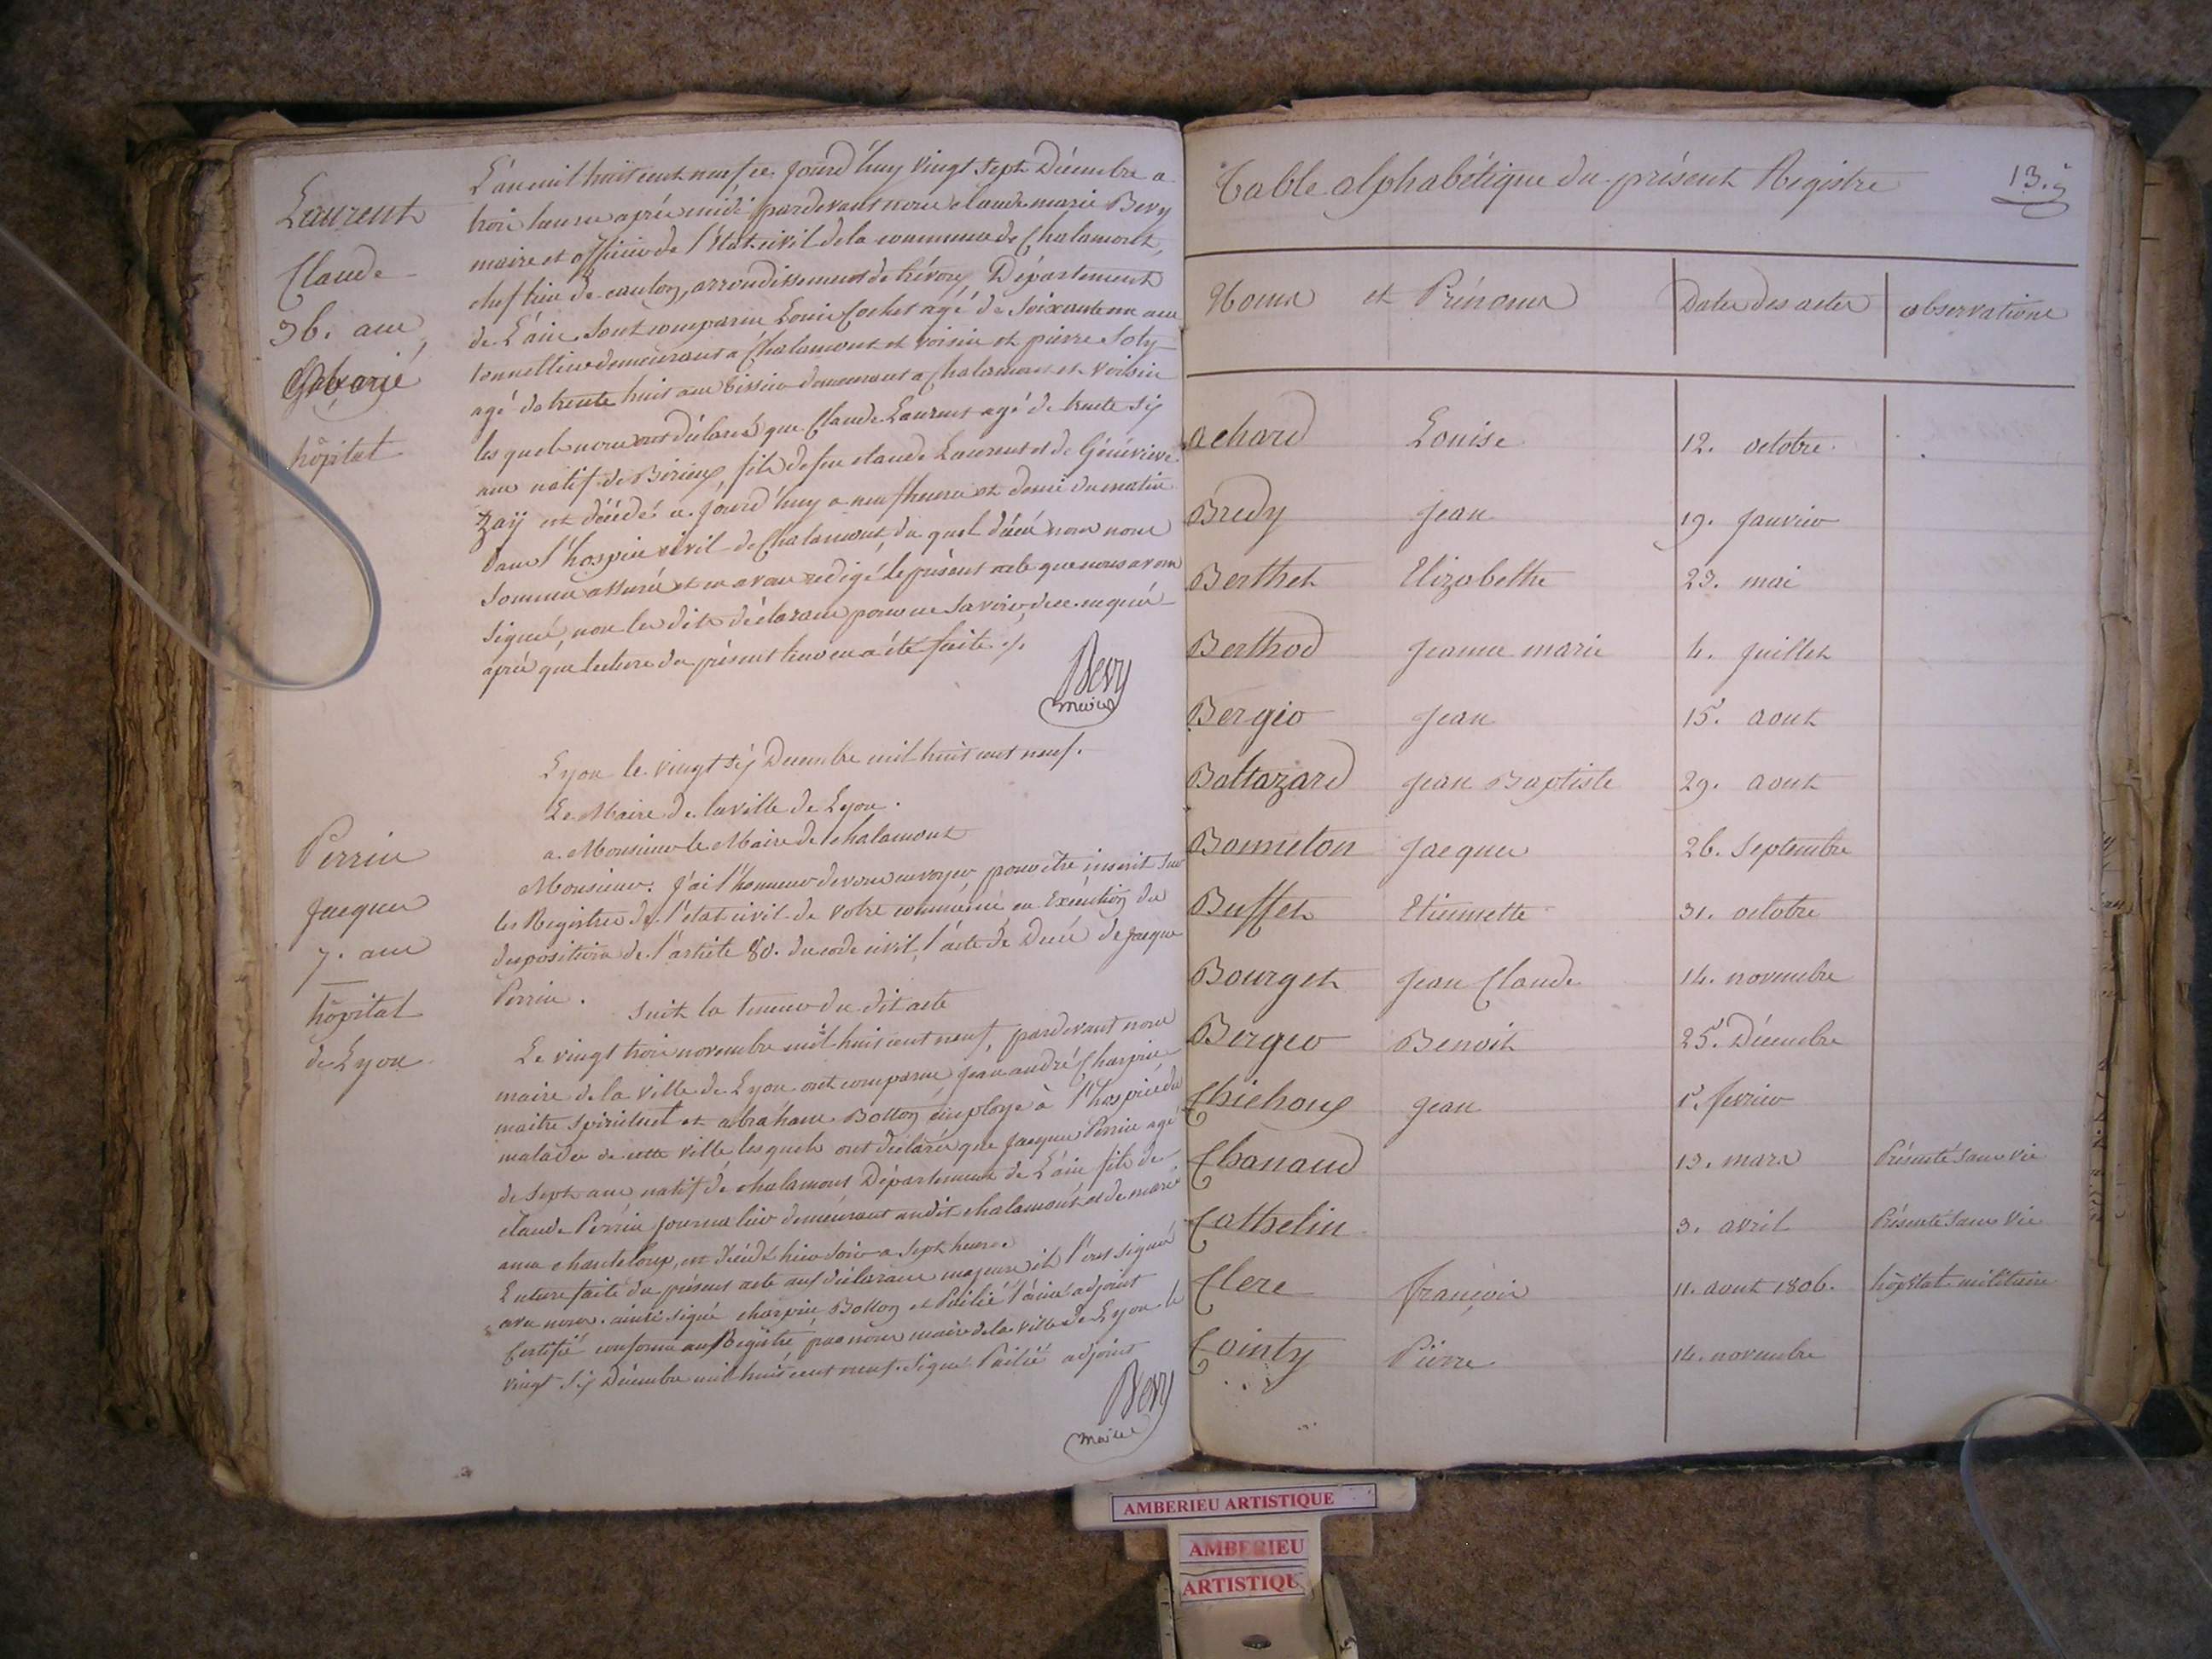 Laurent
Claude
36. ans
hôpital
L'an mil huit cent neuf ce jourd'huy vingt sept Décembre a
trois heures après midi pardevant nous claude marie Bevy
maire et officier de l'Etat civil de la commune de Chalamont,
chef lieu de canton, arrondissement de trévoux, Département
de L'ain. Sont comparus Louis Cochet agé de Soixante un ans
tonnellier demeurant a Chalamont et voisin et pierre Joly
agé de trente huit ans tissier demeurant a Chalamont et voisin
les quels nous ont déclarés que Claude Laurent agé de trente six
ans natif de Birieux, fils de feu claude Laurent et de Généviève
Zaÿ est décédé ce jourd'huy a neuf heures et demi du matin
dans l'hospice civil de Chalamont, du quel décès nous nous
sommes assuré et en avons redigé le présent acte que nous avons
signé, non les dits déclarans pour ne savoir, de ce enquis
après que lecture du présent leur en a été faite ./.
Bevy
maire
Perrin
Jacques
7. ans
hôpital
de Lyon
Lyon le vingt six Decembre mil huit cent neuf.
Le Maire de la ville de Lyon.
a Monsieur le Maire de chalamont
Monsieur. J'ai l'honneur de vous envoyer pour être inscrit sur
les Registres de l'état civil de votre commune en Exécution des
dispositions de l'article 80. du code civil, l'acte de Décès de Jacques
Perrin.
suit la teneur du dit acte
Le vingt trois novembre mil huit cent neuf, pardevant nous
maire de la ville de Lyon ont comparus Jean andré Charpin
maitre spirituel et abraham Botton employé à l'hospice des
malades de cette ville, lesquels ont déclarés que Jacques Perrin agé
de sept ans natif de chalamont Département de L'ain fils de
claude Perrin journalier demeurant audit chalamont et de marie
anne chanteloup, est décédé hier soir a sept heures.
Lecture faite du présent acte aux déclarans majeurs ils l'ont signé
avec nous. ainsi signé charpin, Botton et l'ainé adjoint
Certifié conforme aux Registre par nous maire de la ville de Lyon le
vingt six Décembre mil huit cent neuf. Signé adjoint
Bevy
maire
Table alphabétique du présent Registre
13.e
Noms et Prénoms Dates des actes observations
achard Louise 12. octobre
Bredy Jean 19. Janvier
Berthet Elizabethe 23. mai
Berthod Jeanne marie 4. Juillet
Bergio Jean 15. aout
Baltazard Jean Baptiste 29. aout
Bonneton Jacques 26. Septembre
Buffet Etiennette 31. octobre
Bourget Jean Claude 14. novembre
Berger Benoit 25. Décembre
Chichoux Jean 1er. fevrier
Chanaud 13. mars Présenté sans vie
Cathelin 3. avril Présenté sans vie
Clerc françois 11. aout 1806. hôpital militaire
Cointy Pierre 14. novembre
AMBERIEU ARTISTIQUE
AMBERIEU
ARTISTIQUE